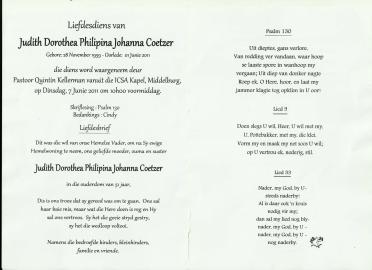 Liefdesdiens van
Judith Dorothea Philipina Johanna Coetzer
Gebore: 28 November 1959 - Oorlede: 01 Junie 2011
die diens word waargeneem deur
Pastoor Quintin Kellerman vanuit die ICSA Kapel, Middelburg,
op Dinsdag, 7 Junie 2011 om 10h00 voormiddag.
Skriflesing - Psalm 130
Bedankings : Cindy
Liefdesbrief
Dit was die wil van onse Hemelse Vader, om na Sy ewige
Hemelwoning te neem, ons geliefde moeder, ouma en suster
Judith Dorothea Philipina Johanna Coetzer
in die ouderdom van 51 jaar.
Dit is ons troos dat sy gereed was om te gaan. Ons sal
haar baie mis, maar wat die Here doen is reg en Hy
sal ons vertroos. Sy het die goeie stryd gestry,
sy het die wedloop voltooi.
Namens die bedroefde kinders, kleinkinders,
familie en vriende.
Psalm 130
Uit dieptes, gans verlore,
Van redding ver vandaan, waar hoop
se laaste spore in wanhoop my
vergaan; Uit diep van donker nagte
Roep ek, O Heer, hoor, en laat my
jammer klagte tog opklim in U oor!
Lied 9
Doen slegs U wil, Heer, U wil met my.
U, Pottebakker, met my, die klei.
Vorm my en maak my net soos U wil;
op U vertrou ek, nederig, stil.
Lied 33
Nader, my God, by U-
steeds naderby:
Al is daar ook 'n kruis
nodig vir my;
dan sal my lied nog bly-
nader, my God, by U –
nader, my God, by U –
nog naderby.